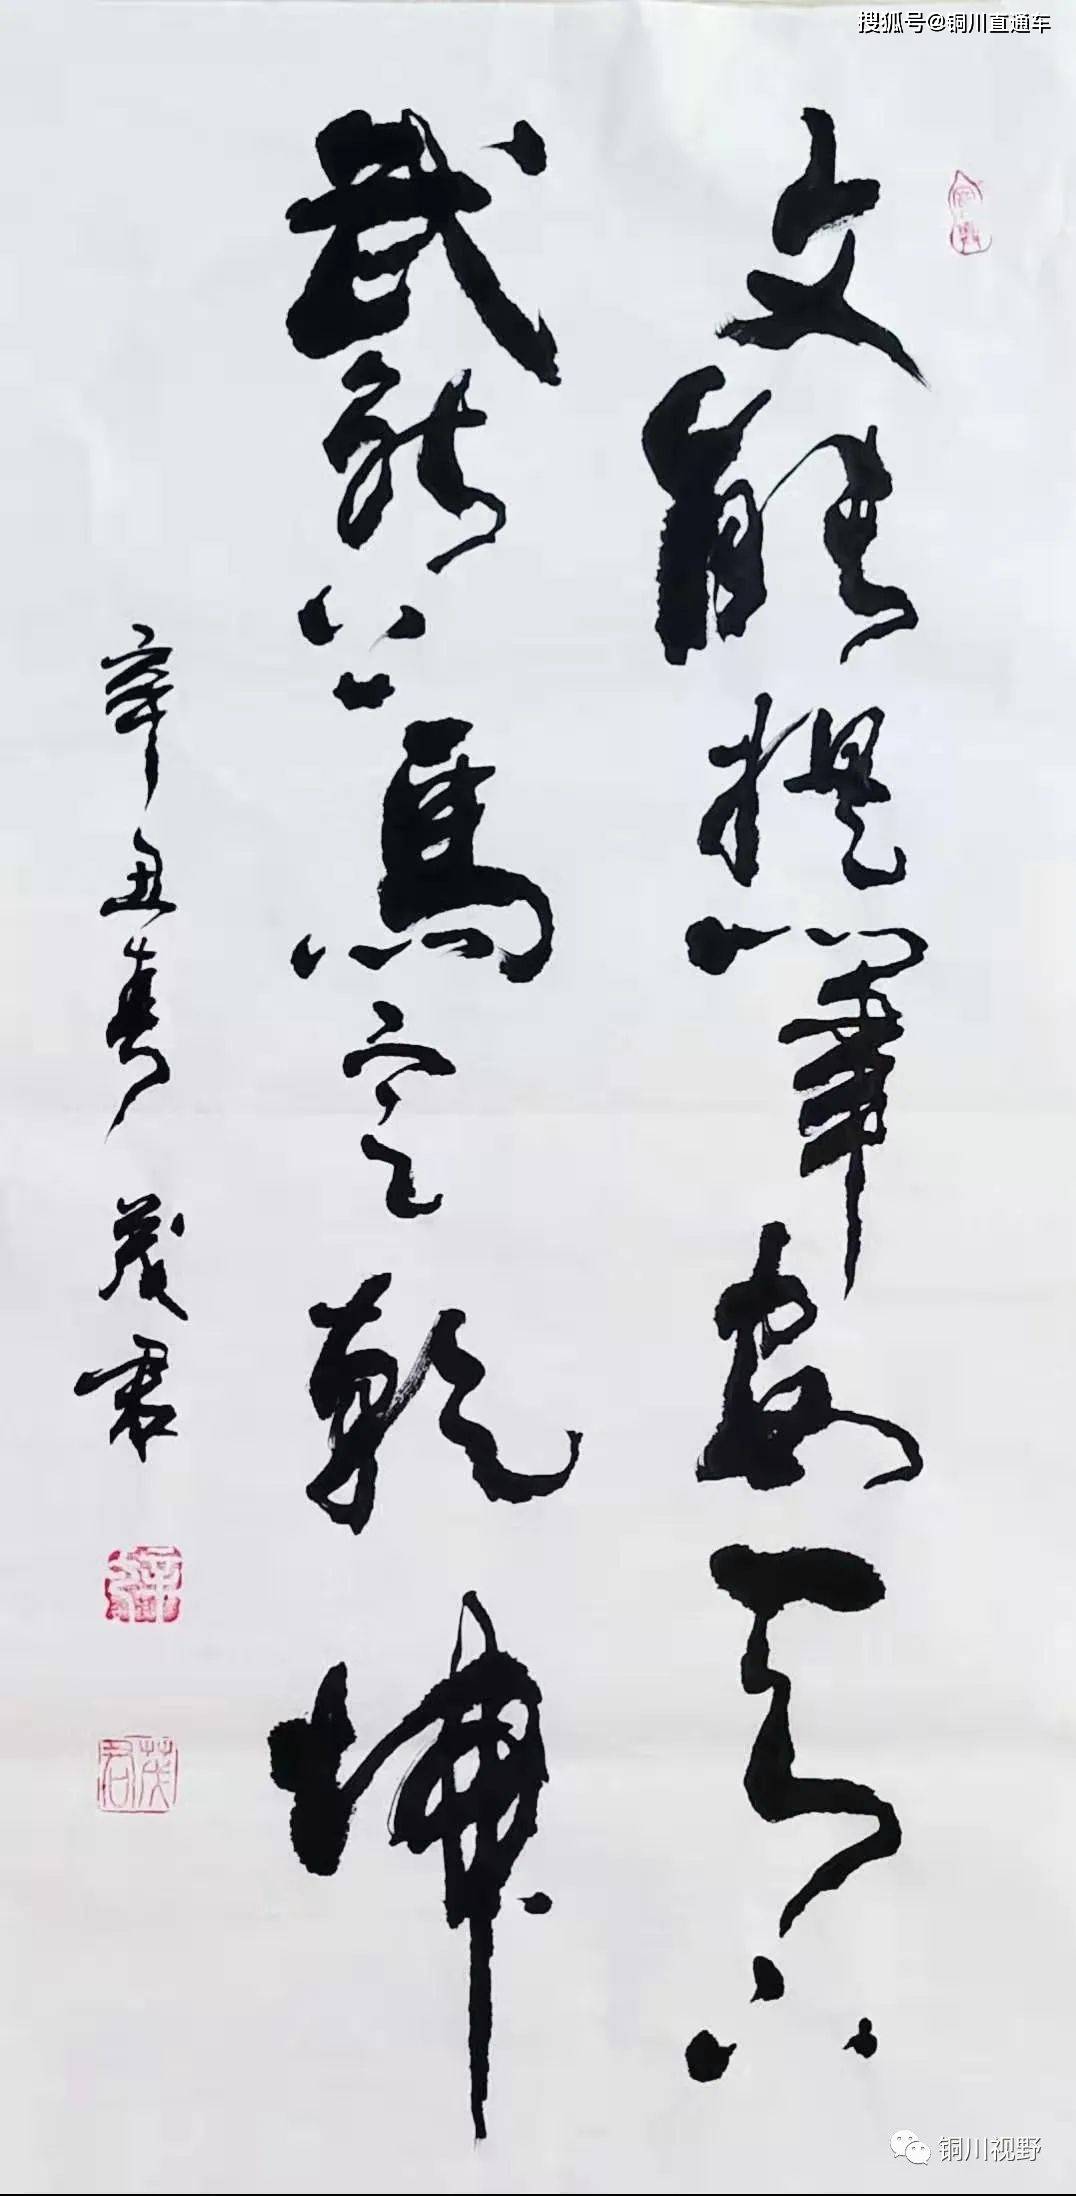 搜狐号@铜川直通车
文能提筆安天下
武能上馬定乾坤
辛丑春 茂君
茂君
铜川视野